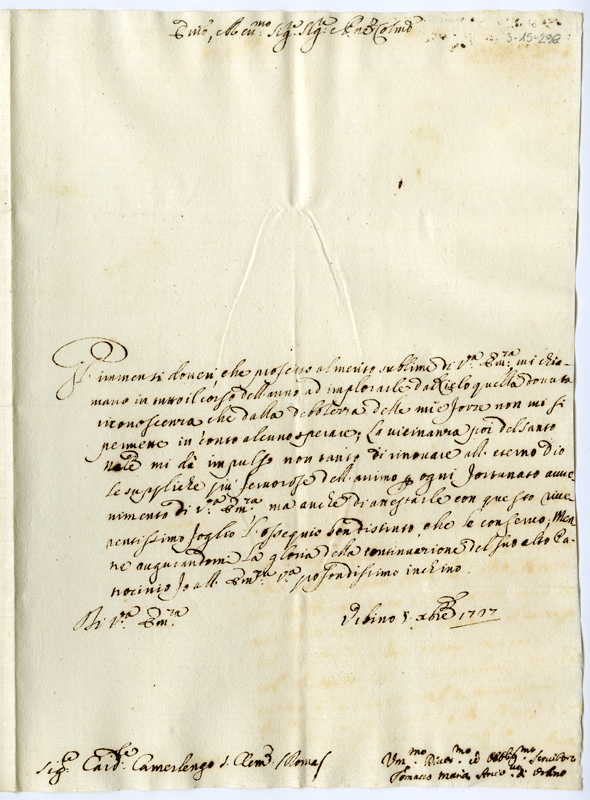 Em̃o, e Rev.mo Sig.r Sig.r e P̃ne Colmo
3-15-298
Gl' immensi doveri, che professo al merito sublime di V.ra Em.za mi chia-
mano in tutto il corso dell'anno ad implorarle dal Cielo quella dovuta
riconoscenza che dalla debolezza delle mie forze non mi si
permette in conto alcuno sperare; La vicinanza poi del Santo
Nãle mi dà impulso non tanto di rinovare all'eterno Dio
le suppliche più fervorose dell'animo ꝑ ogni fortunato avve
nimento di V.ra Em.za ma anche di attestarle con questo rive
rentissimo foglio l'ossequio ben distinto, che le conservo, Men
re augurandomi la gloria della continuazione del suo alto Pa-
trocinio Io all' Em.za V.ra profondissimo inchino.
Di V.ra Em.za
Urbino 5 Xbre 1727
Sig.r Card.le Camerlengo S. Clem.te Roma
Um.mo Divot.mo ed Obblig.mo Servitore
Tomaso Maria Arciv.o di Urbino